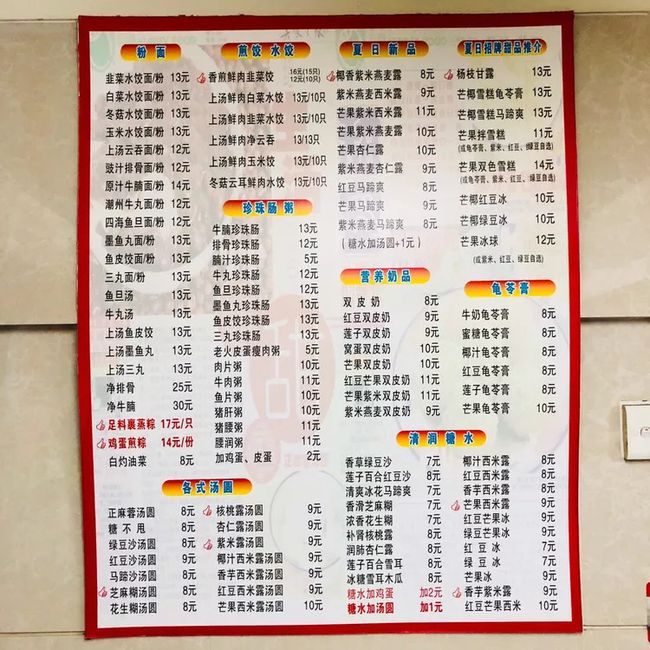 粉面
韭菜水饺面/粉 13元
白菜水饺面/粉 13元
冬菇水饺面/粉 13元
玉米水饺面/粉 13元
上汤云吞面/粉 12元
豉汁排骨面/粉 12元
原汁牛腩面/粉 14元
潮州牛丸面/粉 12元
四海鱼旦面/粉 12元
墨鱼丸面/粉 13元
鱼皮饺面/粉 13元
三丸面/粉 13元
鱼旦汤 13元
牛丸汤 13元
上汤鱼皮饺 13元
上汤墨鱼丸 13元
上汤三丸 13元
净排骨 25元
净牛腩 30元
足料裹蒸粽 17元/只
鸡蛋煎粽 14元/份
白灼油菜 8元
煎饺 水饺
香煎鲜肉韭菜饺 16元(15只) 12元(10只)
上汤鲜肉白菜水饺 13元/10只
上汤鲜肉韭菜水饺 13元/10只
上汤鲜肉净云吞 13/13只
上汤鲜肉玉米水饺 13元/10只
冬菇云耳鲜肉水饺 13元/10只
珍珠肠 粥
牛腩珍珠肠 13元
排骨珍珠肠 12元
腩汁珍珠肠 5元
牛丸珍珠肠 12元
鱼旦珍珠肠 12元
墨鱼丸珍珠肠 13元
鱼皮饺珍珠肠 13元
三丸珍珠肠 13元
老火皮蛋瘦肉粥 5元
肉片粥 10元
牛肉粥 11元
鱼片粥 10元
猪肝粥 10元
猪腰粥 11元
腰润粥 11元
加鸡蛋、皮蛋 2元
夏日新品
椰香紫米燕麦露 8元
紫米燕麦西米露 9元
芒果紫米西米露 11元
芒果紫米燕麦露 10元
芒果杏仁露 10元
紫米燕麦杏仁露 9元
红豆马蹄爽 8元
芒果马蹄爽 9元
紫米燕麦马蹄爽 8元
(糖水加汤圆+1元)
夏日招牌甜品推介
杨枝甘露 13元
芒椰雪糕龟苓膏 13元
芒椰雪糕马蹄爽 13元
芒果拌雪糕 11元
(或龟苓膏、紫米、红豆、绿豆自选)
芒果双色雪糕 14元
(或龟苓膏、紫米、红豆、绿豆自选)
芒椰红豆冰 10元
芒椰绿豆冰 10元
芒果冰球 12元
(或紫米、红豆、绿豆自选)
营养奶品
双皮奶 8元
红豆双皮奶 9元
莲子双皮奶 9元
窝蛋双皮奶 10元
芒果双皮奶 10元
红豆芒果双皮奶 11元
紫米芒果双皮奶 11元
紫米燕麦双皮奶 9元
龟苓膏
牛奶龟苓膏 8元
蜜糖龟苓膏 8元
椰汁龟苓膏 8元
红豆龟苓膏 8元
莲子龟苓膏 8元
芒果龟苓膏 10元
各式汤圆
正麻蓉汤圆 8元
糖不甩 8元
绿豆沙汤圆 8元
红豆沙汤圆 9元
马蹄沙汤圆 8元
芝麻糊汤圆 8元
花生糊汤圆 8元
核桃露汤圆 9元
杏仁露汤圆 9元
紫米露汤圆 9元
椰汁西米露汤圆 9元
香芋西米露汤圆 9元
红豆西米露汤圆 9元
芒果西米露汤圆 10元
清润糖水
香草绿豆沙 7元
莲子百合红豆沙 8元
清爽冰花马蹄爽 7元
香滑芝麻糊 7元
浓香花生糊 7元
补肾核桃露 8元
润肺杏仁露 8元
莲子百合雪耳 8元
冰糖雪耳木瓜 8元
糖水加鸡蛋 加2元
糖水加汤圆 加1元
椰汁西米露 8元
红豆西米露 8元
香芋西米露 8元
芒果西米露 9元
红豆芒果冰 9元
紫米芒果冰 9元
红豆冰 7元
绿豆冰 7元
芒果冰 9元
香芋紫米露 9元
红豆芒果西米 10元